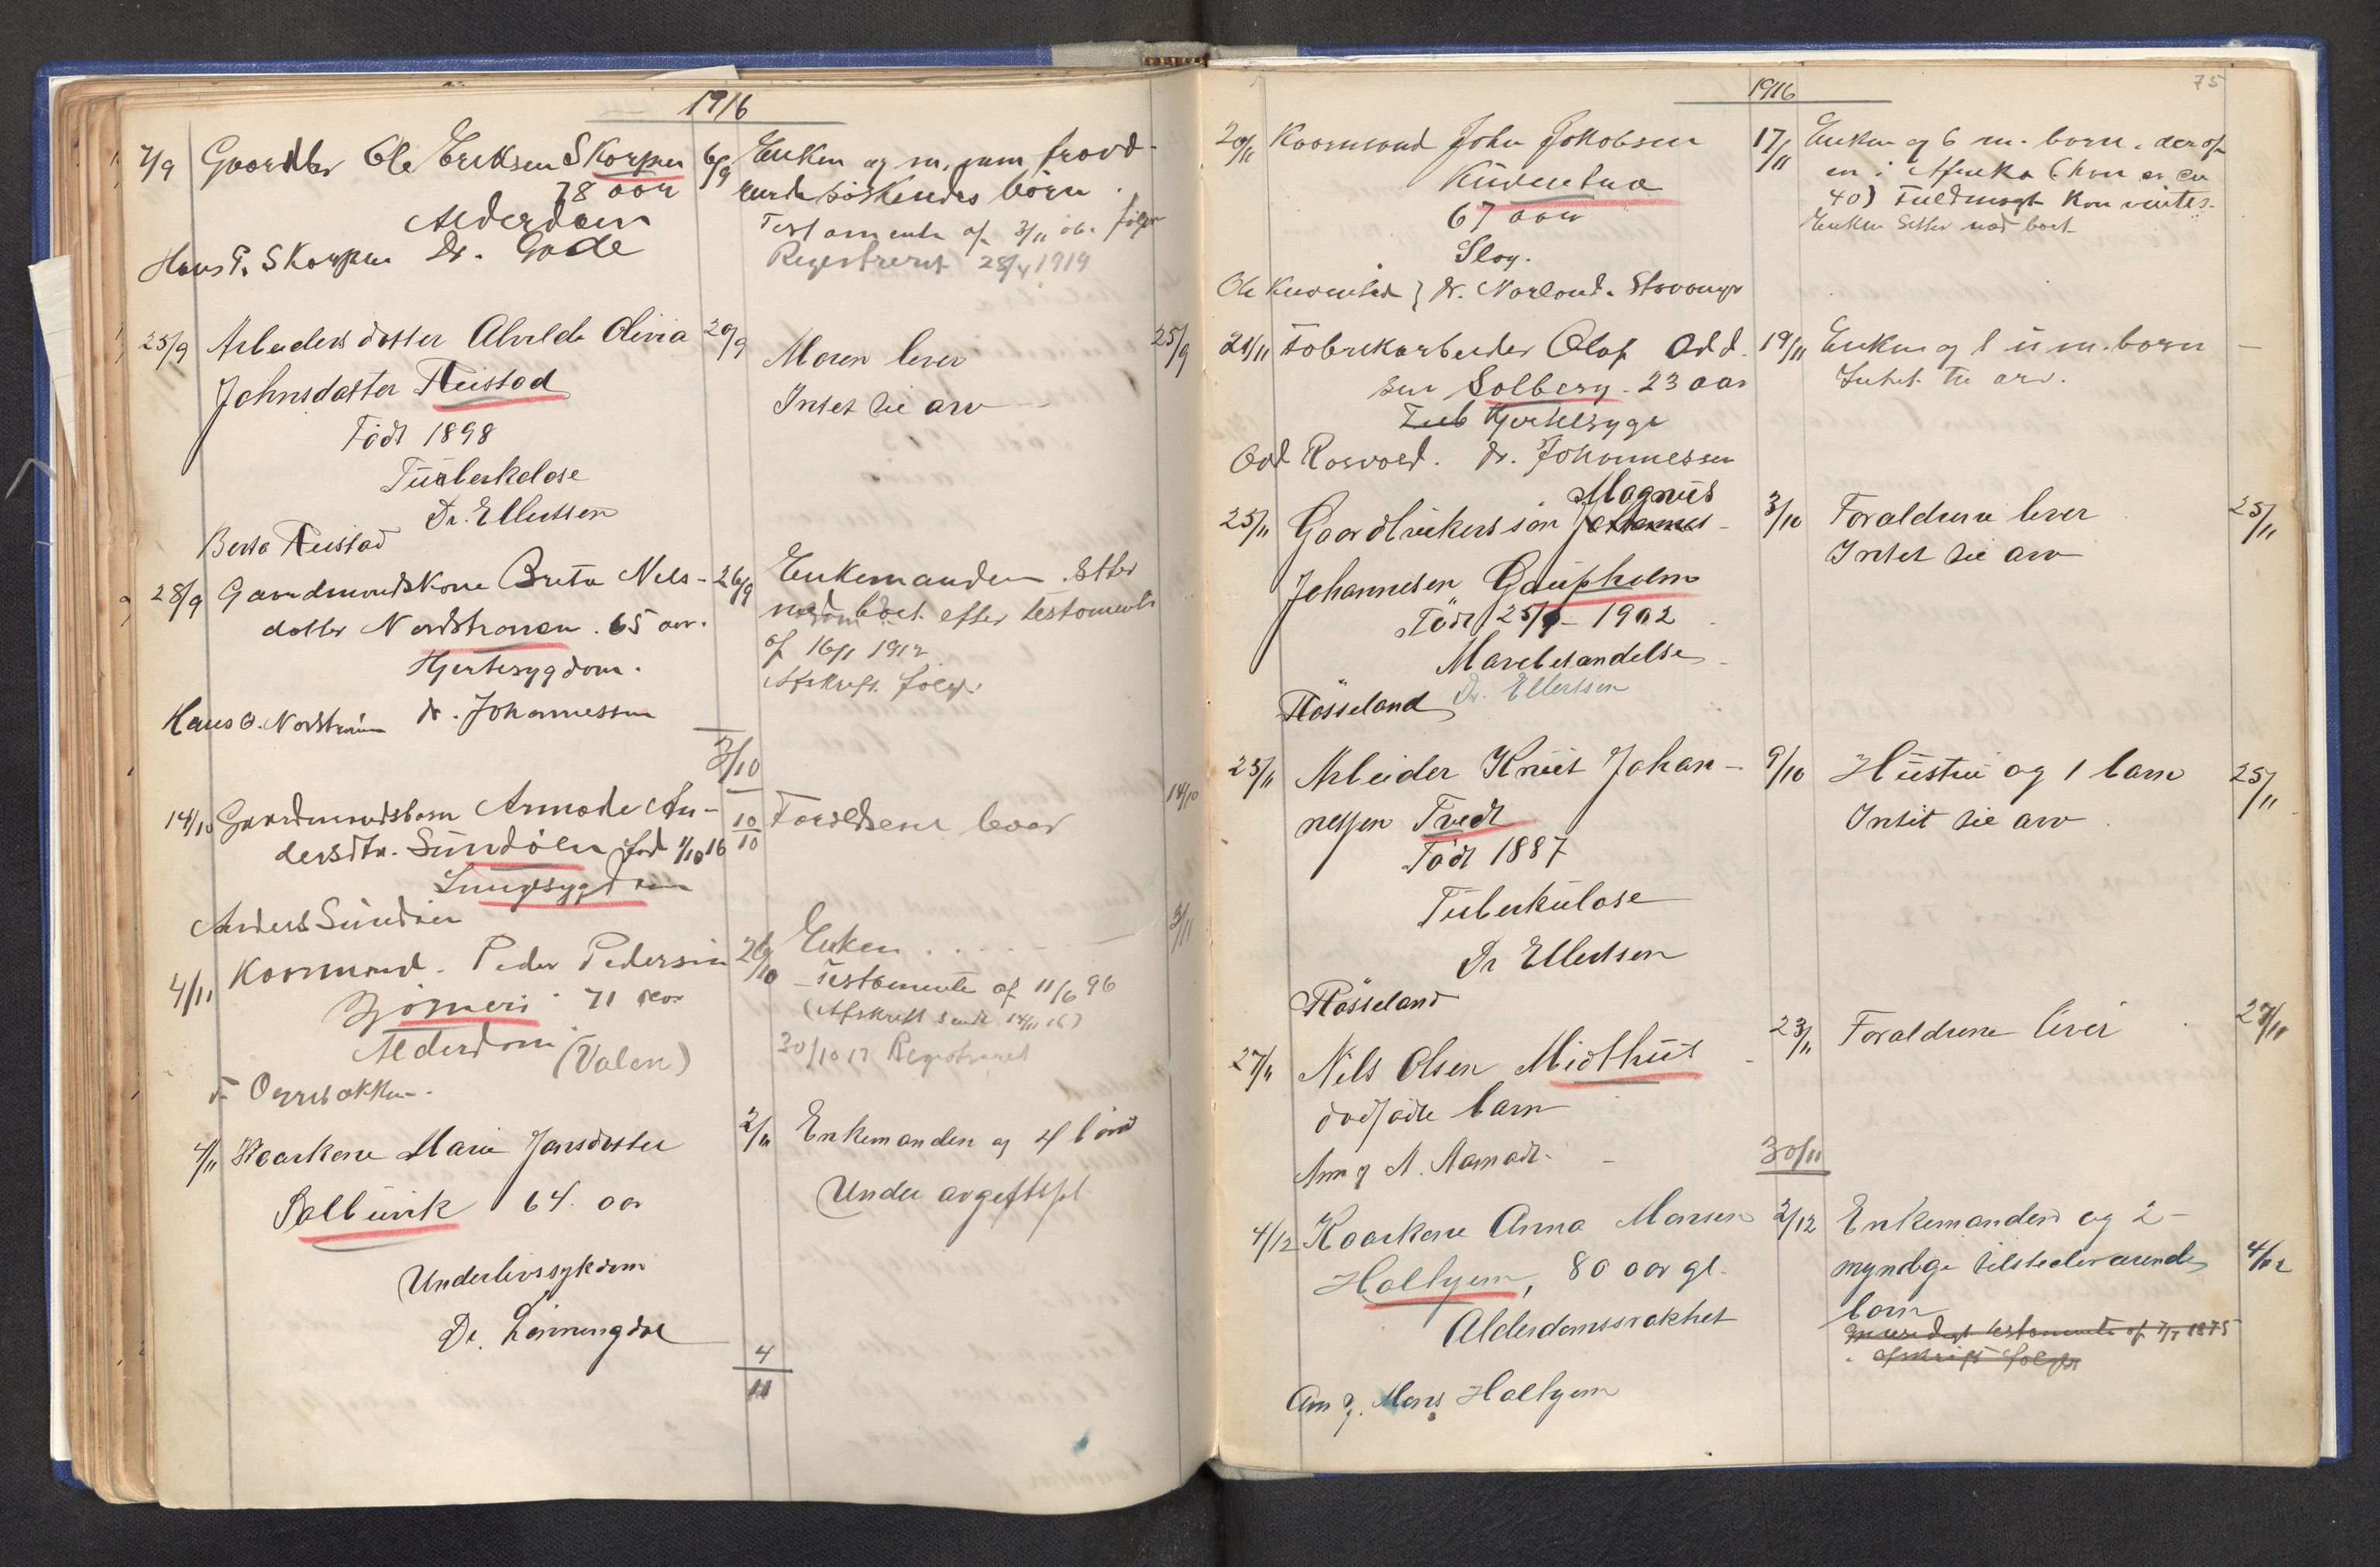 1916
7/9 Gaardbr Ole Eriksen Skorpen 6/9 Enken og
78 aar søskendes børn
Alderdom Testamente af 3/11 følger
Hans P. Skorpen Dr. Gade Registreret 28/4 1919
25/9 Arbeiders datter Alvilde Olivia 20/9 Moren lever 25/9
Johnsdatter Fleistad Intet tie arv
Født 1898
Tuberkelose
Dr. Ellertsen
Berta Fleistad
28/9 Gaardmandskone Brita Nels- 26/9 Enkemanden sitter
datter Nordstronen. 65 aar. boet efter testamente
Hjertesygdom. af 16/1 1912
Afskrift følger
Hans O. Dr. Johannessen
3/10
14/10 Gaardmandsbarn An- 10/10 Forældrene lever 14/10
dersdtr. Sundøen fød 1/10 16
Lungesygdom
Anders Sundøen
4/11 Kaarmand. Peder Pedersen 26/10 Enken 3/11
71 aar Testamente af 11/6 96
Alderdom (Valen) (Afskrift sendt 14/11 16)
30/10 17 Registreret
4/11 Kaarkone Marie Jansdatter 2/11 Enkemanden og 4 børn
64 aar Under
Underlivssykdom
Dr. Lønningdal
4/11
75
1916
20/11 Kaarmand John Jakobsen 17/11 Enken og 6 m. børn, deraf
67 aar en i Afrika (han er ca
Slag. 40) Fuldmagt kan ventes.
Enken sitter med boet
Dr. Norland. Stavanger
21/11 Fabrikarbeider Olaf Odd- 19/11 Enken og 1 um. barn
sen Solberg. 23 aar Intet til arv.
Tub Hjertesyge
Odd Rosvold. Dr. Johannessen
Magnus
25/11 Gaardbrukerssøn Johannes 3/10 Foraldrene lever 25/11
Johannesen Gaupholm Intet tie arv
Født 25/9-1902
Mavebetændelse
Røsseland Dr. Ellertsen
25/11 Arbeider Knut Johan- 9/10 Hustru og 1 barn 25/11
nessen Tvedt Intet tie arv
Født 1887
Tuberkulose
Dr Ellertsen
Røsseland
27/11 Nils Olsen Midthus 23/11 Foraldrene lever 27/11
dødfødte barn
Anm. af A. Aamodt.
30/11
4/12 Kaarkone Anna Monsen 2/12 Enkemanden og 2
Holtyem, 80 aar gl. myndige tilstedeværende 4/12
Alderdomssvakhet barn
testamente af 7/7 1875
afskrift følger
Anm. af Mons Holtyem